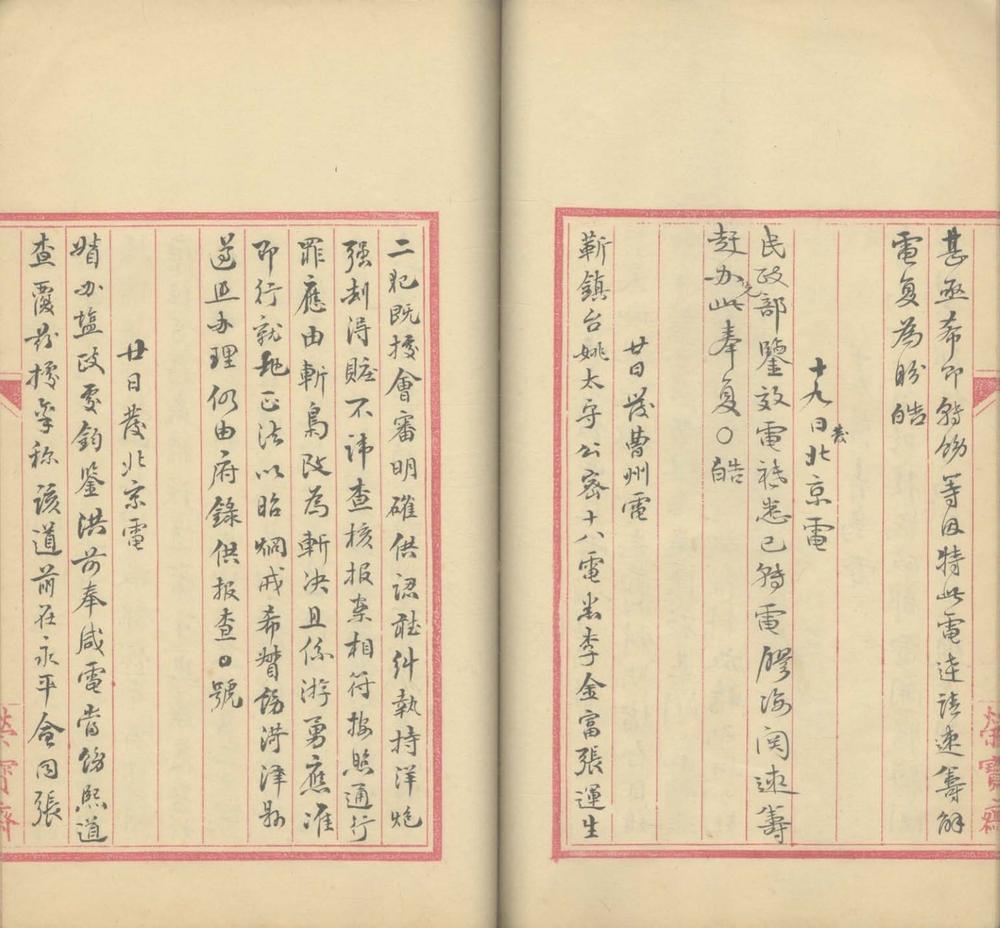 甚亟希即轉飭等因特此電達請速籌解
電复為盼皓
十九日發北京電
民政部鑒效電祗悉已轉電膠海関速籌
赶办先此奉复○皓
廿日發曹州電
靳鎮台姚太守公密十八電悉李金富張運生
二犯既據會審明確供認放糾執持洋炮
强刦得賍不諱查核报案相符按照通行
罪應由斬梟改為斬决且係游勇應准
即行就地正法以昭烱戒希督飭菏澤縣
遵照办理仍由府錄供报查○號
廿日發北京電
督办塩政處鈞鑒洪前奉咸電當飭熙道
查覆茲據稟称該道前在永平會同張
榮寳齋
榮寳齋